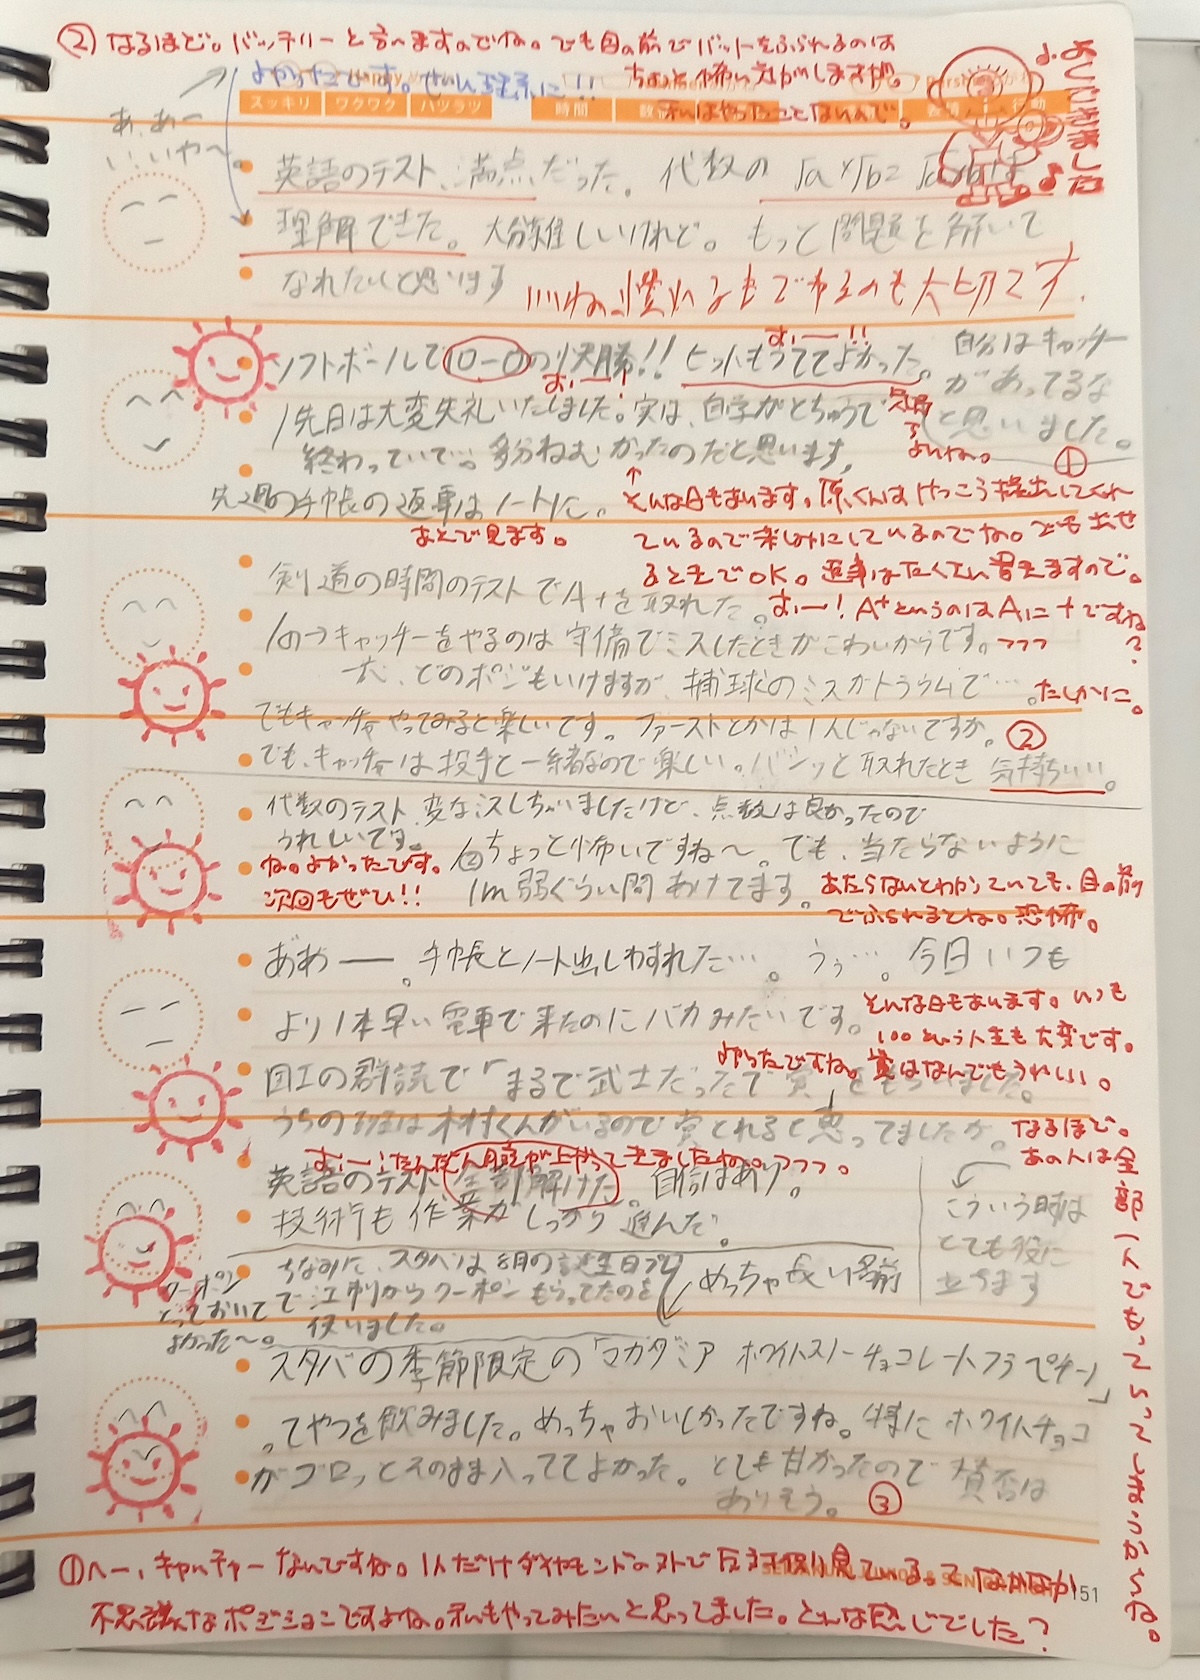 ② なるほど。バッテリーと言いますものね。でも目の前でバットをふられるのは
ちょっと怖い気がしますが。
私はやったことないんで。
よかったです。ぜひ
よくできました
スッキリ ワクワク ハツラツ 時間 行動
あ、あー
い、いや〜。
英語のテスト、満点だった。代数の √a×√b=
理解できた。大分難しいけれど。もっと問題を解いて
なれたいと思います
いいね。慣れるまでやるのも大切です。
ソフトボールで10-0の快勝!! ヒットもうててよかった。
おー!!
おー!
自分はキャッチャー
があってるな
と思いました。
①
先日は大変失礼いたしました。実は、自学がとちゅうで
終わっていて…。多分ねむかったのだと思います。
よいね。
先週の手帳の返事はノートに。
あとで見ます。
↑そんな日もあります。原くんはけっこう提出してくれ
ているので楽しみにしているのでね。でも出せ
るときでOK。返事はたくさん書きますので。
剣道の時間のテストでA+を取れた。
おー! A+というのはAに+ですね
?
①の→キャッチーをやるのは守備でミスしたときがこわいからです。
フフフ
一応、どのポジもいけますが、捕球のミスがトラウムで…。
たしかに。
でもキャッチャーやってみると楽しいです。ファーストとかは1人じゃないですか。②
でも、キャッチャーは投手と一緒なので楽しい。バシッと取れたとき気持ちいい。
代数のテスト、変なミスしちゃいましたけど、点数は良かったので
うれしいです。
ね。よかったです。
次回もぜひ!!
②ちょっと怖いですね〜。でも、当たらないように
1m弱ぐらい間あけてます。
あたらないとわかっていても、目の前
でふられるとね。恐怖。
あ゛あ゛ー。手帳とノート出しわすれた…。うぅ…。今日いつも
より1本早い電車で来たのにバカみたいです。
そんな日もあります。いつも
100という人生も大変です。
よかったですね。賞はなんでもうれしい。
国工の群読で「まるで武士だったで賞」をもらいました。
うちの班は木村くんがいるので賞とれると思ってましたが。
なるほど。
あの人は全部一人でもっていってしまうからね。
おー!だんだん自信が上がってきましたね。フフフ。
英語のテスト、全部解けた。自信はあり。
技術も作業がしっかり進んだ。
こういう時は
とても役に
立ちます
ちなみに、スタバは8月の誕生日
で江刺からクーポンもらってたのを
使いました。
クーポン
とっておいて
よかった〜。
めっちゃ長い名前
スタバの季節限定の「マカダミア ホワイトスノーチョコレートフラペチーノ」
ってやつを飲みました。めっちゃおいしかったですね。特にホワイトチョコ
がゴロッとそのまま入っててよかった。とても甘かったので賛否は
ありそう。③
151
①へー、キャッチャーなんですね。1人だけダイヤモンドの外で反対側見てるってなかなか
不思議なポジションですよね。私もやってみたいと思ってました。どんな感じでした?